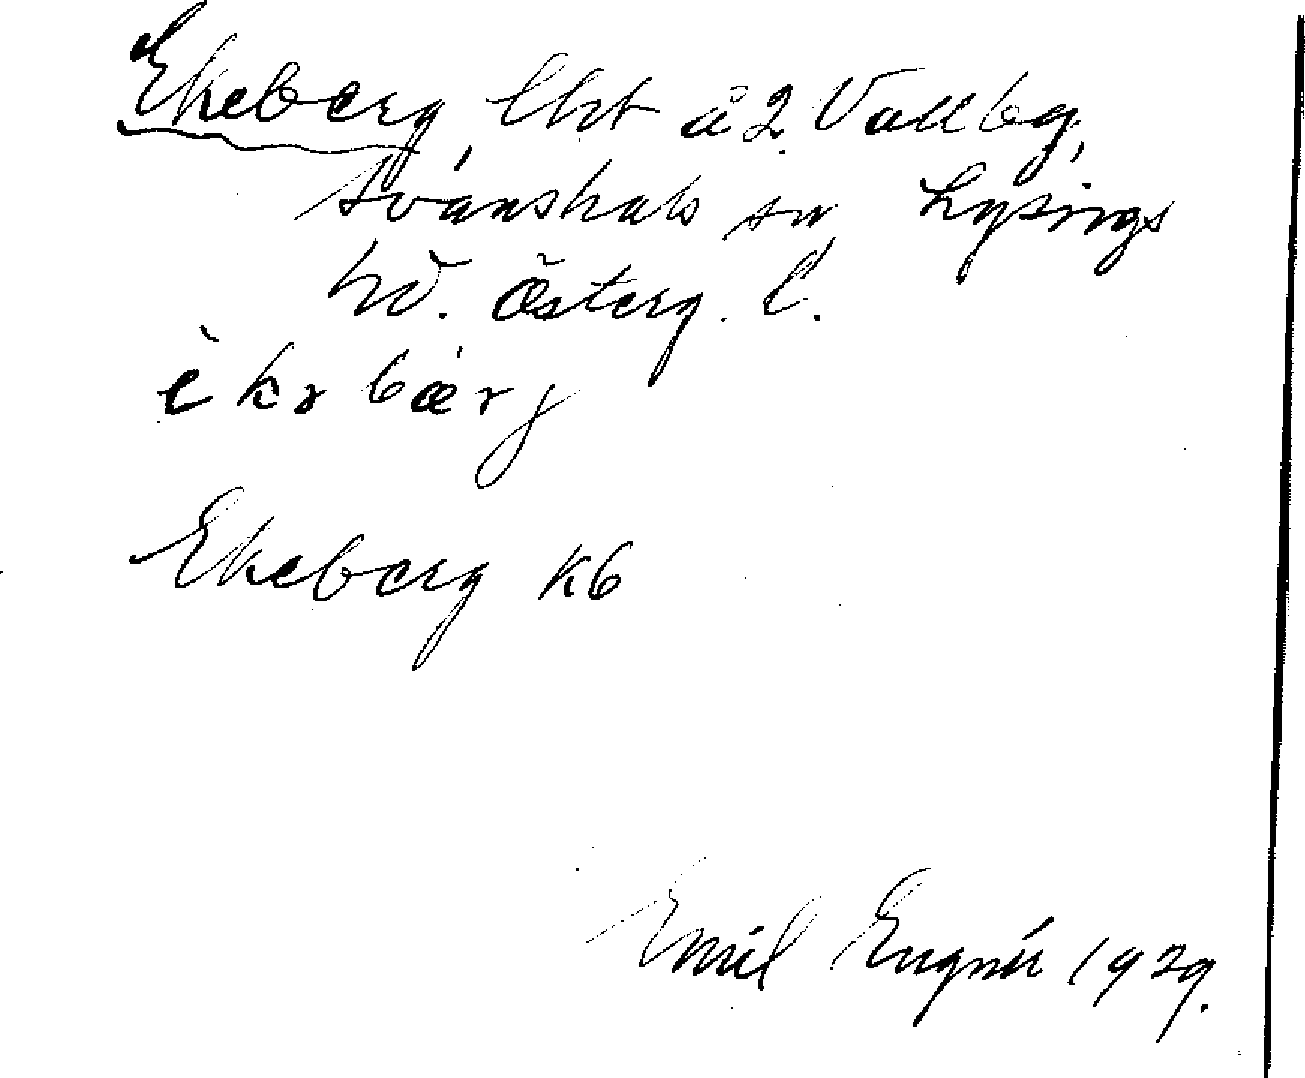 Ekeberg, lht å 2 Vallby,
Svanshals sn Lysings
hd. Österg. l.
èkəbærj
Ekeberg kb
Emil Engnér 1929.